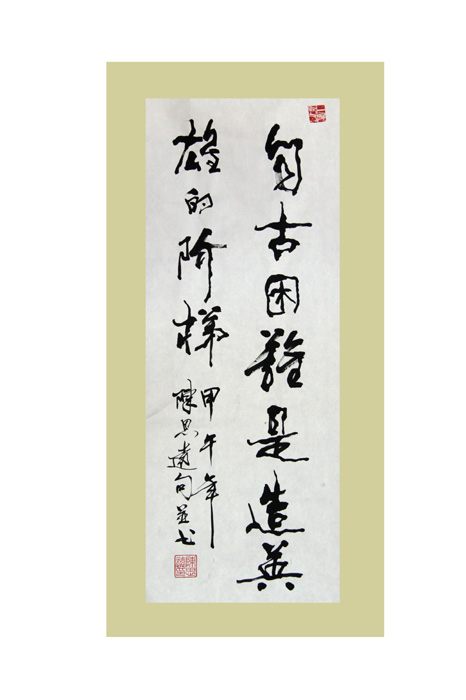 自古困難是造英
雄的阶梯
甲午年
陳思遠句並书